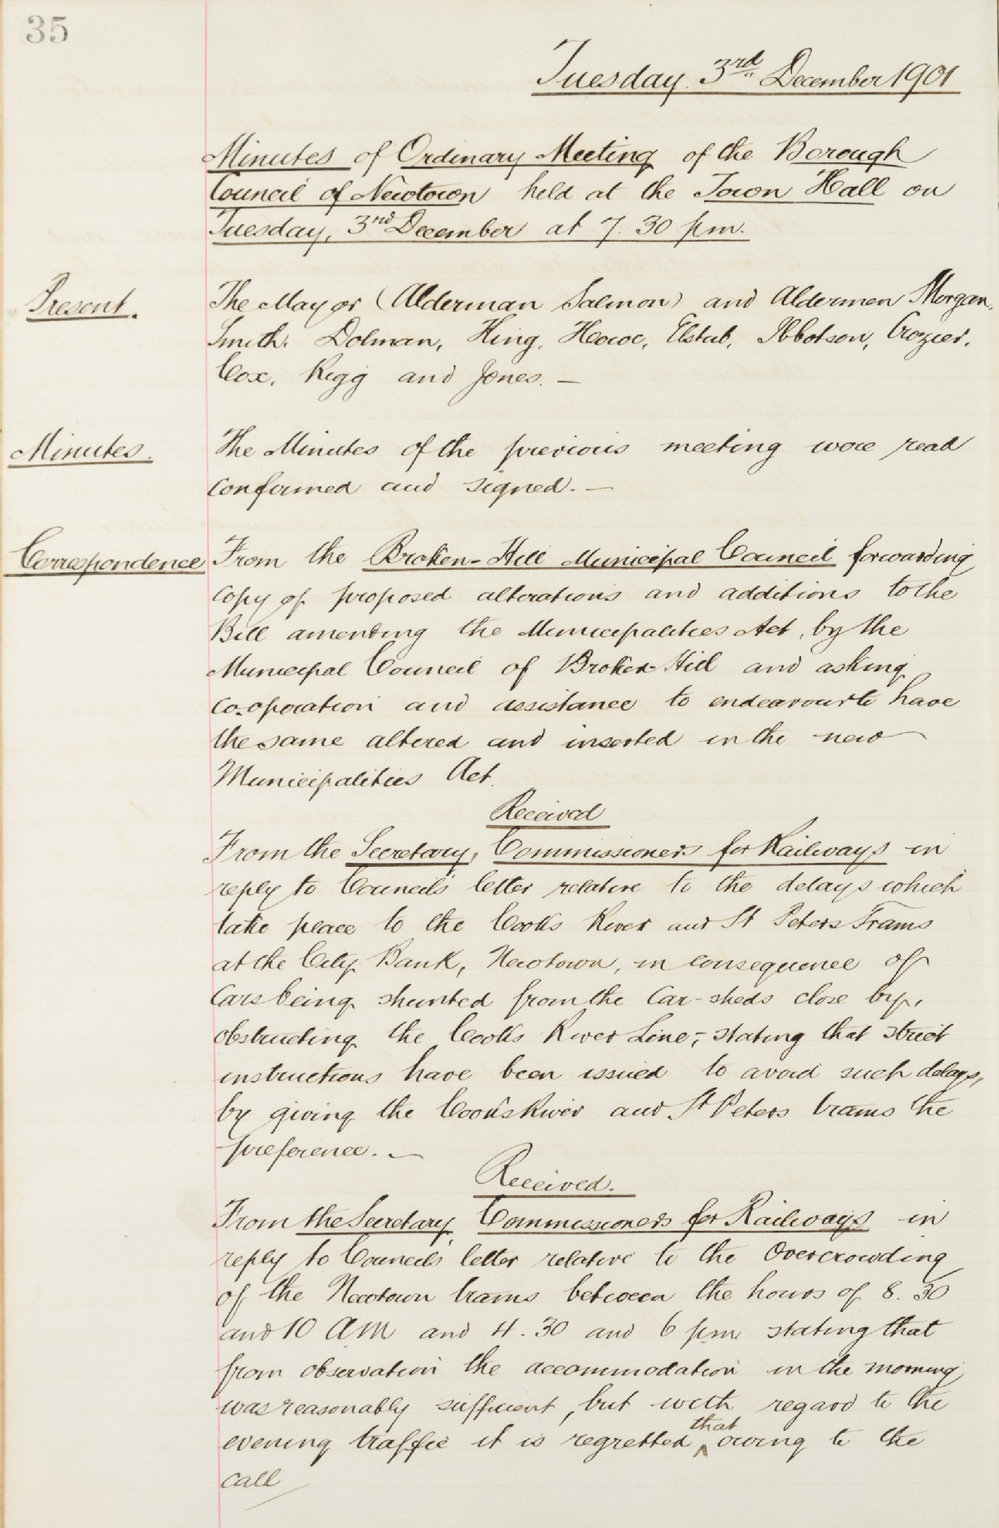 35
Tuesday 3rd December 1901
Minutes of Ordinary Meeting of the Borough
Council of Newtown held at the Town Hall on
Tuesday, 3rd December at 7.30 pm.
Present.
The Mayor (Alderman Salmon) and Aldermen Morgan,
Smith. Dolman, King, Howe, Elstub, Ibbotson, Crozier,
Cox, Rigg and Jones. —
Minutes.
The Minutes of the previous meeting were read
confirmed and signed. —
Correspondence
From the Broken-Hill Municipal Council forwarding
copy of proposed alterations and additions to the
Bill amending the Municipalities Act, by the
Municipal Council of Broken-Hill and asking
co-operation and assistance to endeavour to have
the same altered and inserted in the new
Municipalities Act.
Received
From the Secretary, Commissioners for Railways in
reply to Council's letter relative to the delays which
take place to the Cooks River and St Peters Trams
at the City Bank, Newtown, in consequence of
Cars being shunted from the Car-sheds close by,
obstructing the Cooks River Line;- stating that strict
instructions have been issued to avoid such delays,
by giving the Cook's River and St Peters trams the
preference. —
Received.
From the Secretary Commissioners for Railways in
reply to Council's letter relative to the Overcrowding
of the Newtown trams between the hours of 8.30
and 10 AM and 4.30 and 6 pm stating that
from observation the accommodation in the morning
was reasonably sufficient, but with regard to the
evening traffic it is regretted that owing to the
call